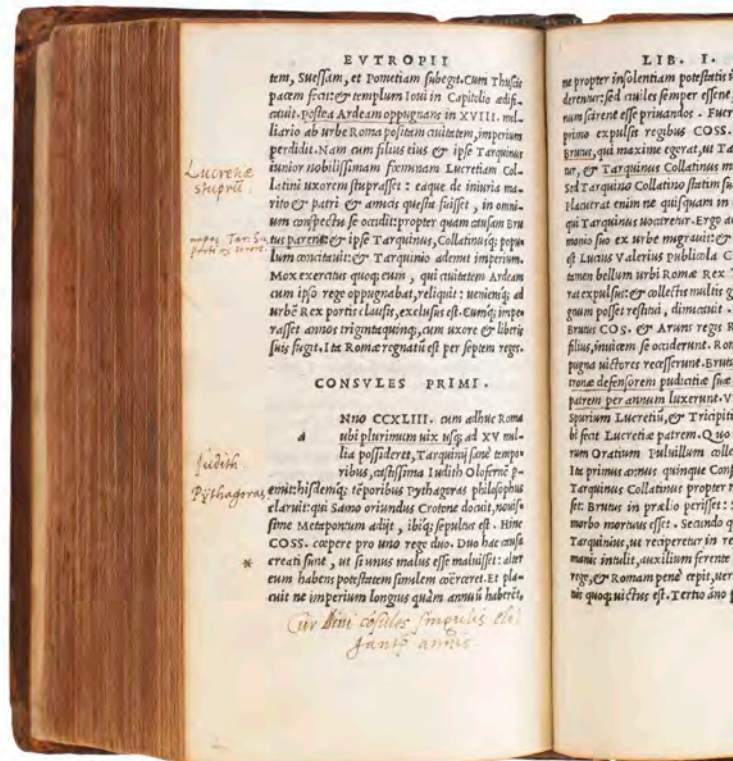 EVTROPII
tem, Suessam, et Pometiam subegit. Cum Thuscis
pacem fecit: & templum Ioui in Capitolio ædifi-
cauit. Postea Ardeam oppugnans in XVIII. mil-
liario ab urbe Roma positam ciuitatem, imperium
perdidit. Nam cum filius eius & ipse Tarquinus
iunior nobilissimam fœminam Lucretiam Col-
latini uxorem stuprasset: eaque de iniuria ma-
rito & patri & amicis questa fuisset, in omni-
um conspectu se occidit: propter quam causam Bru
tus parens: & ipse Tarquinus, Collatinusq; popu
lum concitauit: & Tarquinio ademit imperium.
Mox exercitus quoq; eum, qui ciuitatem Ardeam
cum ipso rege oppugnabat, reliquit: ueniensq; ad
urbē Rex portis clausis, exclusus est. Cumq; impe
rasset annos trigintaquinq;, cum uxore & liberis
suis fugit. Ita Romæ regnatū est per septem reges.
CONSVLES PRIMI.
a Nno CCXLIII. cum adhuc Roma
ubi plurimum uix usq; ad XV mil-
lia possideret, Tarquinij sanè tempo
ribus, castissima Iudith Olofernē p-
emit: hisdemq; tēporibus Pythagoras philosophus
claruit: qui Samo oriundus Crotone docuit, nouis-
sime Metapontum adijt, ibiq; sepultus est. Hinc
COSS. cœpere pro uno rege duo. Duo hac causa
* creati sunt, ut si unus malus esse maluisset: alter
eum habens potestatem similem coërceret. Et pla-
cuit ne imperium longius quàm annuū haberet,
Lucretiæ
stuprū.
Judith
Pÿthagoras
Cur bini cōsules singulis
annis
LIB. I.
ne propter insolentiam potestatis
derentur: sed ciuiles semper essent,
num scirent esse priuandos. Fuer
primo expulsis regibus COSS.
Brutus, qui maxime egerat, ut Ta
tur, & Tarquinus Collatinus m
Sed Tarquino Collatino statim su
Placuerat enim ne quisquam in
qui Tarquinus uocaretur. Ergo ac
monio suo ex urbe migrauit: &
est Lucius Valerius Publicola C
tamen bellum urbi Romæ Rex T
rat expulsus: & collectis multis g
gnum posset restitui, dimicauit.
Brutus COS. & Aruns regis
filius, inuicem se occiderunt. Rom
pugna uictores recesserunt. Brutu
tronæ defensorem pudicitiæ suæ
patrem per annum luxerunt. V
Spurium Lucretiū, & Tricipiti
bi fecit Lucretiæ patrem. Quo
rum Oratium Puluillum colle
Ita primus annus quinque Cons
Tarquinus Collatinus propter
set: Brutus in prælio perisset:
morbo mortuus esset. Secundo q
Tarquinius, ut reciperetur in re
manis intulit, auxilium ferente
rege, & Romam penè cepit, uer
tus quoq; uictus est. Tertio āno